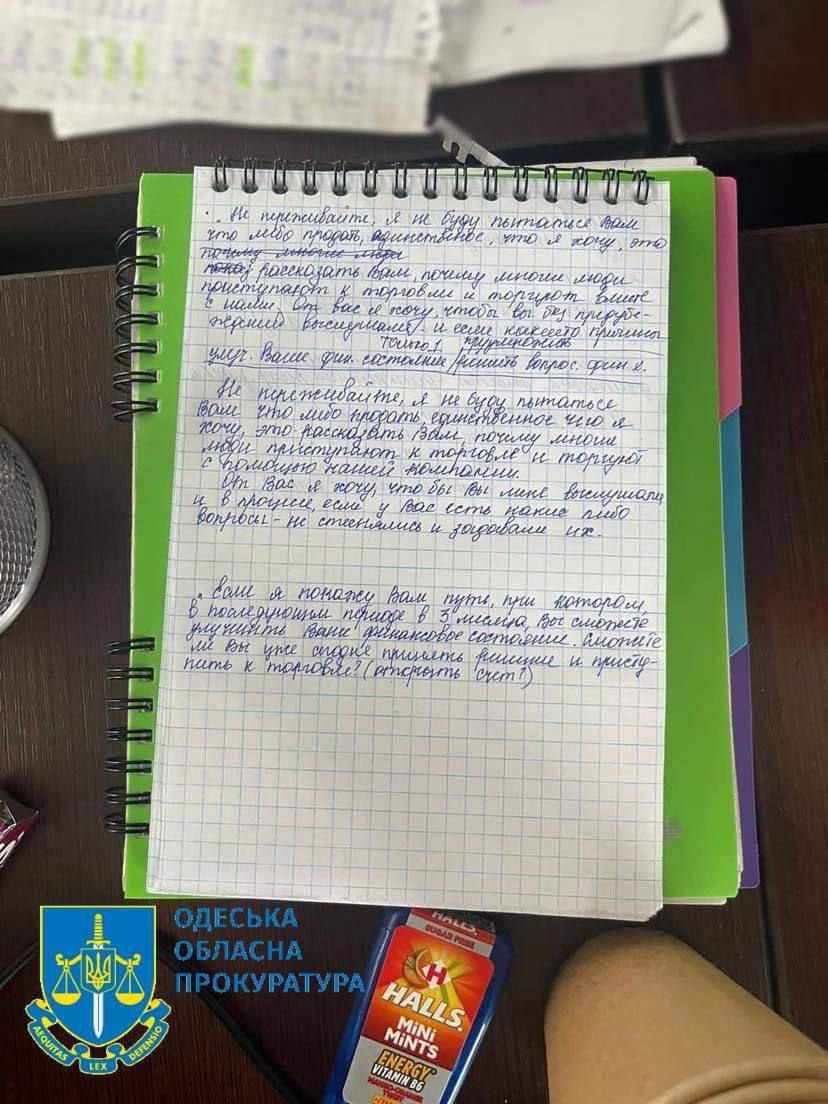 . Не переживайте, я не буду пытаться Вам
что либо продать, единственое, что я хочу, это
почему многие люди
показ рассказать Вам, почему многие люди
приступают к торговли и торгуют вместе
с нами. От вас я хочу, чтобы вы без предубе-
ждений выслушали. и если какието причины
только 1 приумножить
улуч. Ваше фин. состояние/решить вопрос. фин. х.
Не переживайте, я не буду пытаться
Вам что либо продать, единственное что я
хочу, это рассказать Вам, почему многие
люди приступают к торговле и торгуют
с помощью нашей компании.
От Вас я хочу, что бы Вы меня выслушали
и в процессе, если у Вас есть какие либо
вопросы - не стеснялись и задавали их.
. Если я покажу Вам путь, при котором,
в последующем периоде в 3 месяца, Вы сможете
улучшить Ваше финансовое состояние. Сможете
ли Вы уже сегодня принять решение и присту-
пить к торговле? (открыть счет?)
ОДЕСЬКА
ОБЛАСНА
ПРОКУРАТУРА
AEQUITAS LEX DEFENSIO
HALLS
SUGAR FREE
H
HALLS.
MiNi
MiNTS
ENERGY
VITAMIN B6